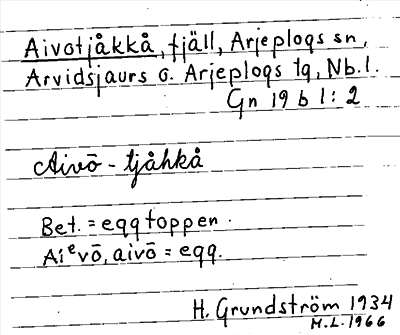 Aivotjåkkå, fjäll, Arjeplogs sn,
Arvidsjaurs o. Arjeplogs tg, Nb. l.
Gn 19 b 1:2
Aivō - tjåhkå
Bet. = eggtoppen.
Aiᵉvō, aivō = egg.
H. Grundström 1934
M.L. 1966